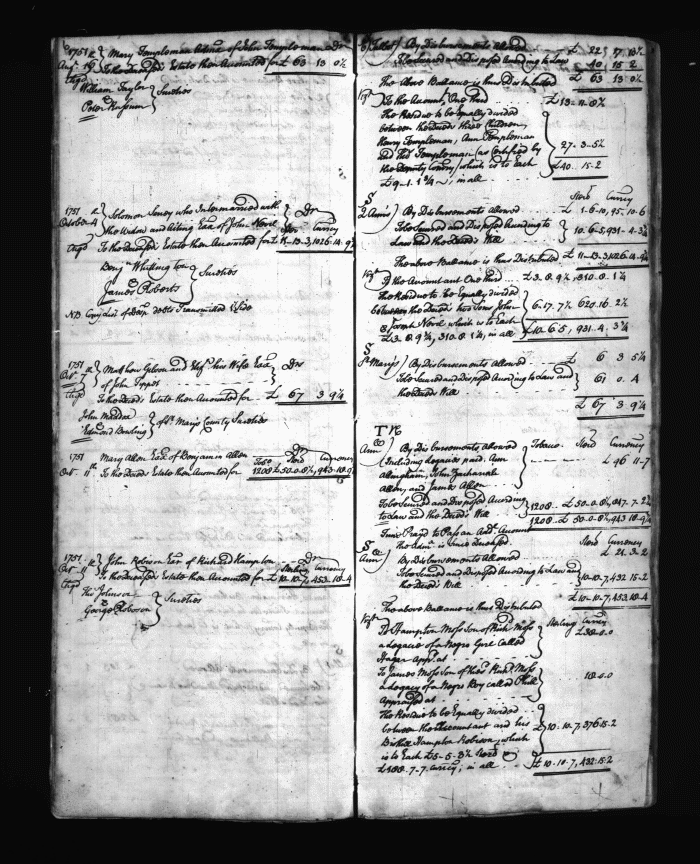 1751
Augt 19
Mary Templeman Admx of John Templeman Dr
To the Deceds Estate then Accounted for £ 63 13 0½
William Taylor
Sureties
1751
October 4
Solomon who Intermarried with
the Widow and Acting Exx of John Dr
To the Deceds Estate then Accounted for £ 11-13-3, 1026-14-9¼
Benja Whittington
Sureties
James Roberts
NB Copy List of Desp. debts Transmitted
1751
Matthew Gibson and his Wife Exx Drs
of John Tippet
To the Deceds Estate then Accounted for £ 67 3 9¼
John
of St Marys County Sureties
Edmund Bowling
1751
Octr 11th
Mary Allen Exx of Benjamin Allen
Tobo Sterl Currency
To the Deceds Estate then Accounted for 1208 £ 50-0-8½, 943-18-9¼
1751
John Robison Exr of Richard Hampton Dr
To the Deceds Estate then Accounted for £ 10-10-7, 453-18-4
Thos Johnson
Sureties
George Robison
By Disbursements Allowed £ 22 17 10½
To be Secured and Disposed According to Law 40 15 2
The Above Ballance is thus Distributed £ 63 13 0½
To the Accountant, One third £ 13-11-8½
The Residue to be equally divided
between the deceds three Children,
Henry Templeman, Ann Templeman
and Templeman (as Certified by
the Deputy Comry) which is to Each 27-3-5½
£ 9-1-1¾, in all £ 40 15-2
Sterl Curry
By Disbursements Allowed £ 1-6-10, 95-10-6
To be Secured and Disposed According to
Law and the Deceds Will 10-6-5, 931-4-3¾
The above Ballance is thus Distributed £ 11-13-3, 1026-14-9¾
To the Accountant One third £ 3-8-9¾, 310-8-1¼
The Residue to be Equally divided
between the deceds two Sons John 6-17-7½ 620-16-2½
& which is to Each
£ 3-8-9¾, 310-8-1¼, in all £ 10-6-5, 931-4-3¾
St Marys
By Disbursements Allowed £ 6 3 5¼
To be Secured and Disposed According to Law and
the Deceds Will 61 0 4
£ 67 3 9¼
Ann
By Disbursements Allowed Tobacco Sterl Currency
(Including Legacies paid Ann £ 96 11-7
Allingham, John Zachariah
Allen, and James Allen
To be Secured and Disposed According 1208 £ 50-0-8½, 847-7-2¼
to Law and the Deceds Will
1208 £ 50-0-8½ 943 18-9¼
Time Prayed to Pass an Addl Account
the is Since Deceased
Sterl Currency
Ann
By Disbursements Allowed £ 21-3-2
To be Secured and Disposed According to Law and
the Deceds Will 10-10-7, 432 15-2
£ 10-10-7, 453 18-4
The above Ballance is thus Distributed
Sterling Curry
To Hampton Moss Son of Richd Moss
a Legacie of a Negro Girl called £ 38-0-0
Hagar Appd at
To James Moss Son of the sd Richd Moss
a Legacy of a Negro Boy called Phill 18-0-0
Appraised at
The Residue to be Equally divided
between the Accountant and his 10-10-7, 376-15-2
Hampton Robison, which
is to Each £ 5-5-3½ Sterl &
£ 188-7-7 Curry, in all £ 10-10-7, 432-15-2